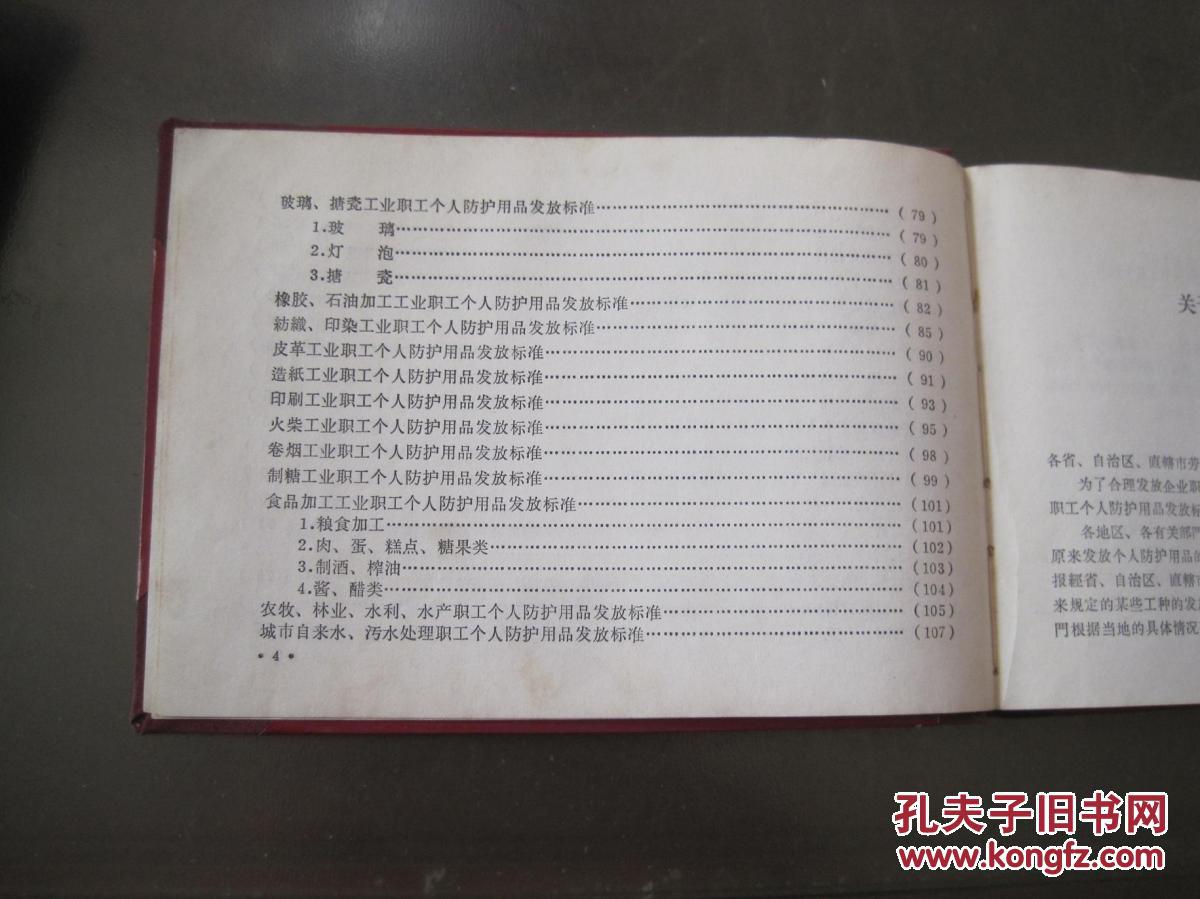 玻璃、搪瓷工业职工个人防护用品发放标准……(79)
1.玻　璃……(79)
2.灯　泡……(80)
3.搪　瓷……(81)
橡胶、石油加工工业职工个人防护用品发放标准……(82)
紡織、印染工业职工个人防护用品发放标准……(85)
皮革工业职工个人防护用品发放标准……(90)
造紙工业职工个人防护用品发放标准……(91)
印刷工业职工个人防护用品发放标准……(93)
火柴工业职工个人防护用品发放标准……(95)
卷烟工业职工个人防护用品发放标准……(98)
制糖工业职工个人防护用品发放标准……(99)
食品加工工业职工个人防护用品发放标准……(101)
1.粮食加工……(101)
2.肉、蛋、糕点、糖果类……(102)
3.制酒、榨油……(103)
4.酱、醋类……(104)
农牧、林业、水利、水产职工个人防护用品发放标准……(105)
城市自来水、污水处理职工个人防护用品发放标准……(107)
• 4 •
关
各省、自治区、直轄市劳
为了合理发放企业职
职工个人防护用品发放标
各地区、各有关部門
原来发放个人防护用品的
报經省、自治区、直轄市
来规定的某些工种的发放
門根据当地的具体情况
孔夫子旧书网
www.kongfz.com